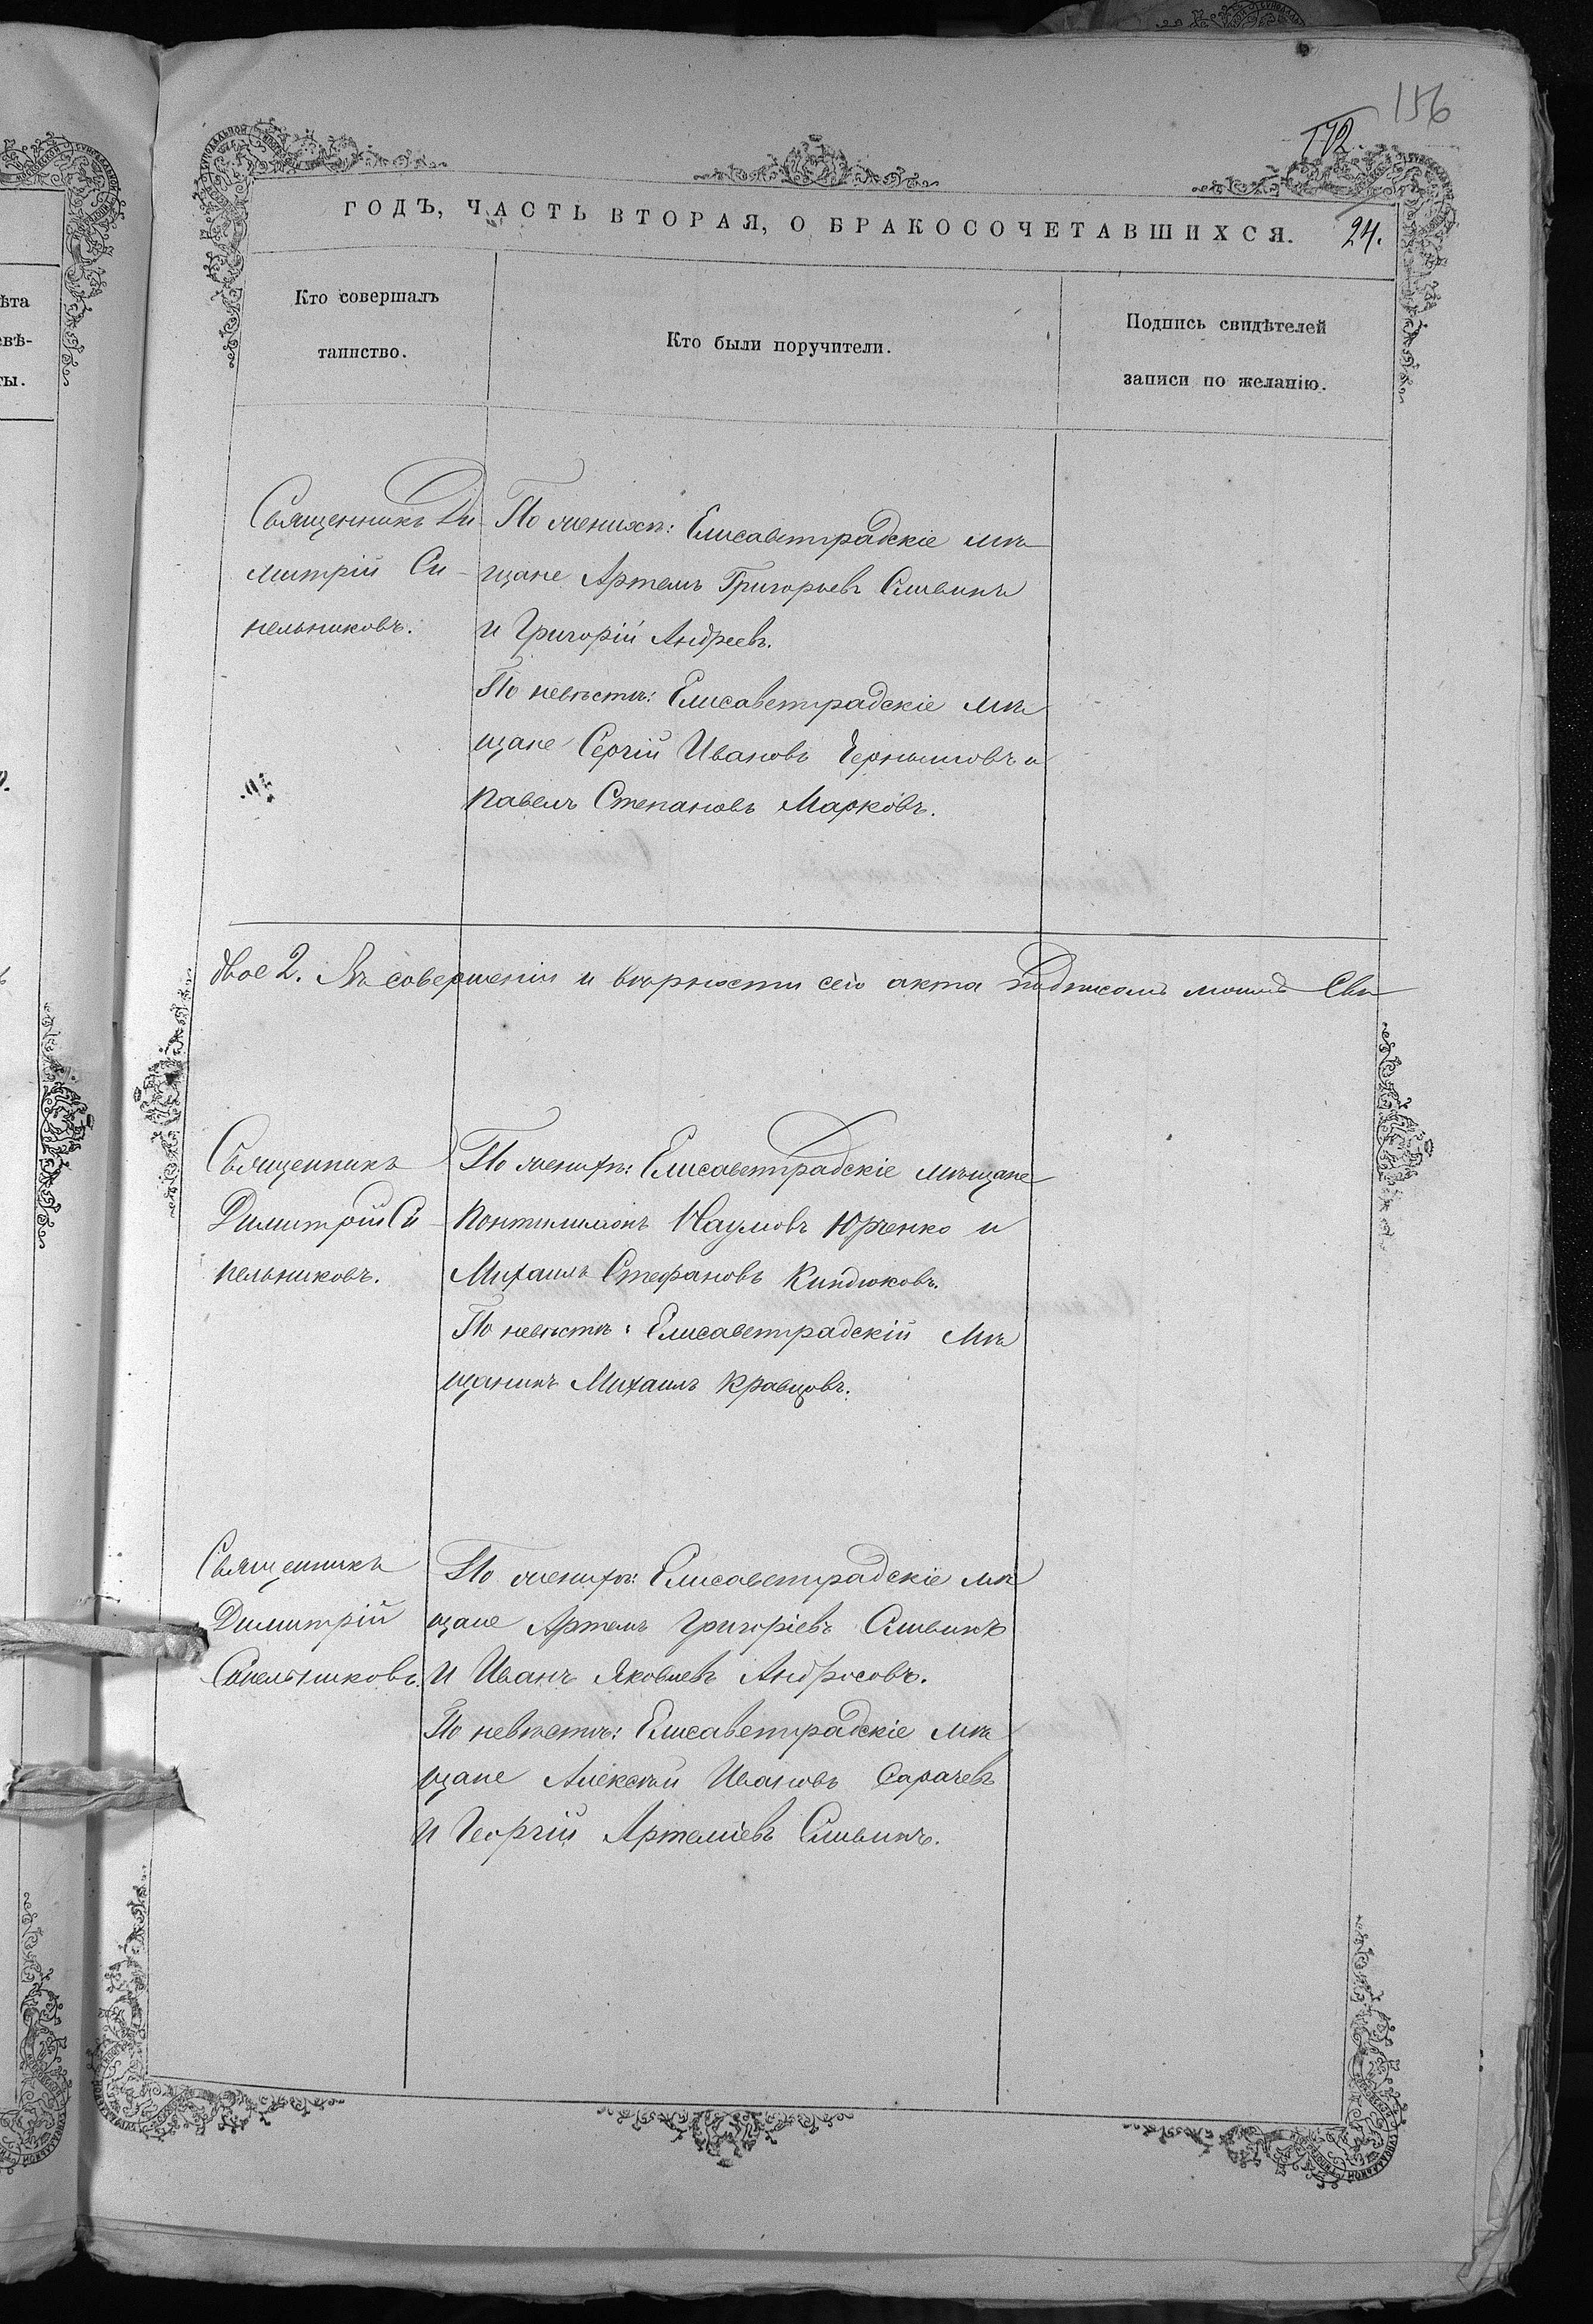 156
172.
ГОДЪ, ЧАСТЬ ВТОРАЯ, О БРАКОСОЧЕТАВШИХСЯ. 24.
Кто совершалъ
таинство.
Кто были поручители.
Подпись свидѣтелей
записи по желанію.
Священникъ Ди-
митрій Си-
нельниковъ.
По женихѣ: Елисаветградскіе мѣ-
щане Артемъ Григорьевъ Сливинъ
и Григорій Андреевъ.
По невѣстѣ: Елисаветградскіе мѣ
щане Сергій Ивановъ Чернышовъ и
Павелъ Степановъ Марковъ.
двое 2. Въ совершеніи и вѣрности сего акта подписомъ Свя
Священникъ
Димитрій Си-
нельниковъ.
По женихѣ: Елисаветградскіе мѣщане
Понтилимонъ Наумовъ Юрченко и
Михаилъ Стефановъ Киндюковъ.
По невѣстѣ: Елисаветградскій мѣ
щанинъ Михаилъ Кравцовъ.
Священникъ
Димитрій
Синельниковъ.
По женихѣ: Елисаветградскіе мѣ
щане Артемъ Григоріевъ Сливинъ
и Иванъ Яковлевъ Андросовъ.
По невѣстѣ: Елисаветградскіе мѣ
щане Алексѣй Ивановъ Сарачевъ
и Георгій Артеміевъ Сливинъ.
ѣта
евѣ-
ты.